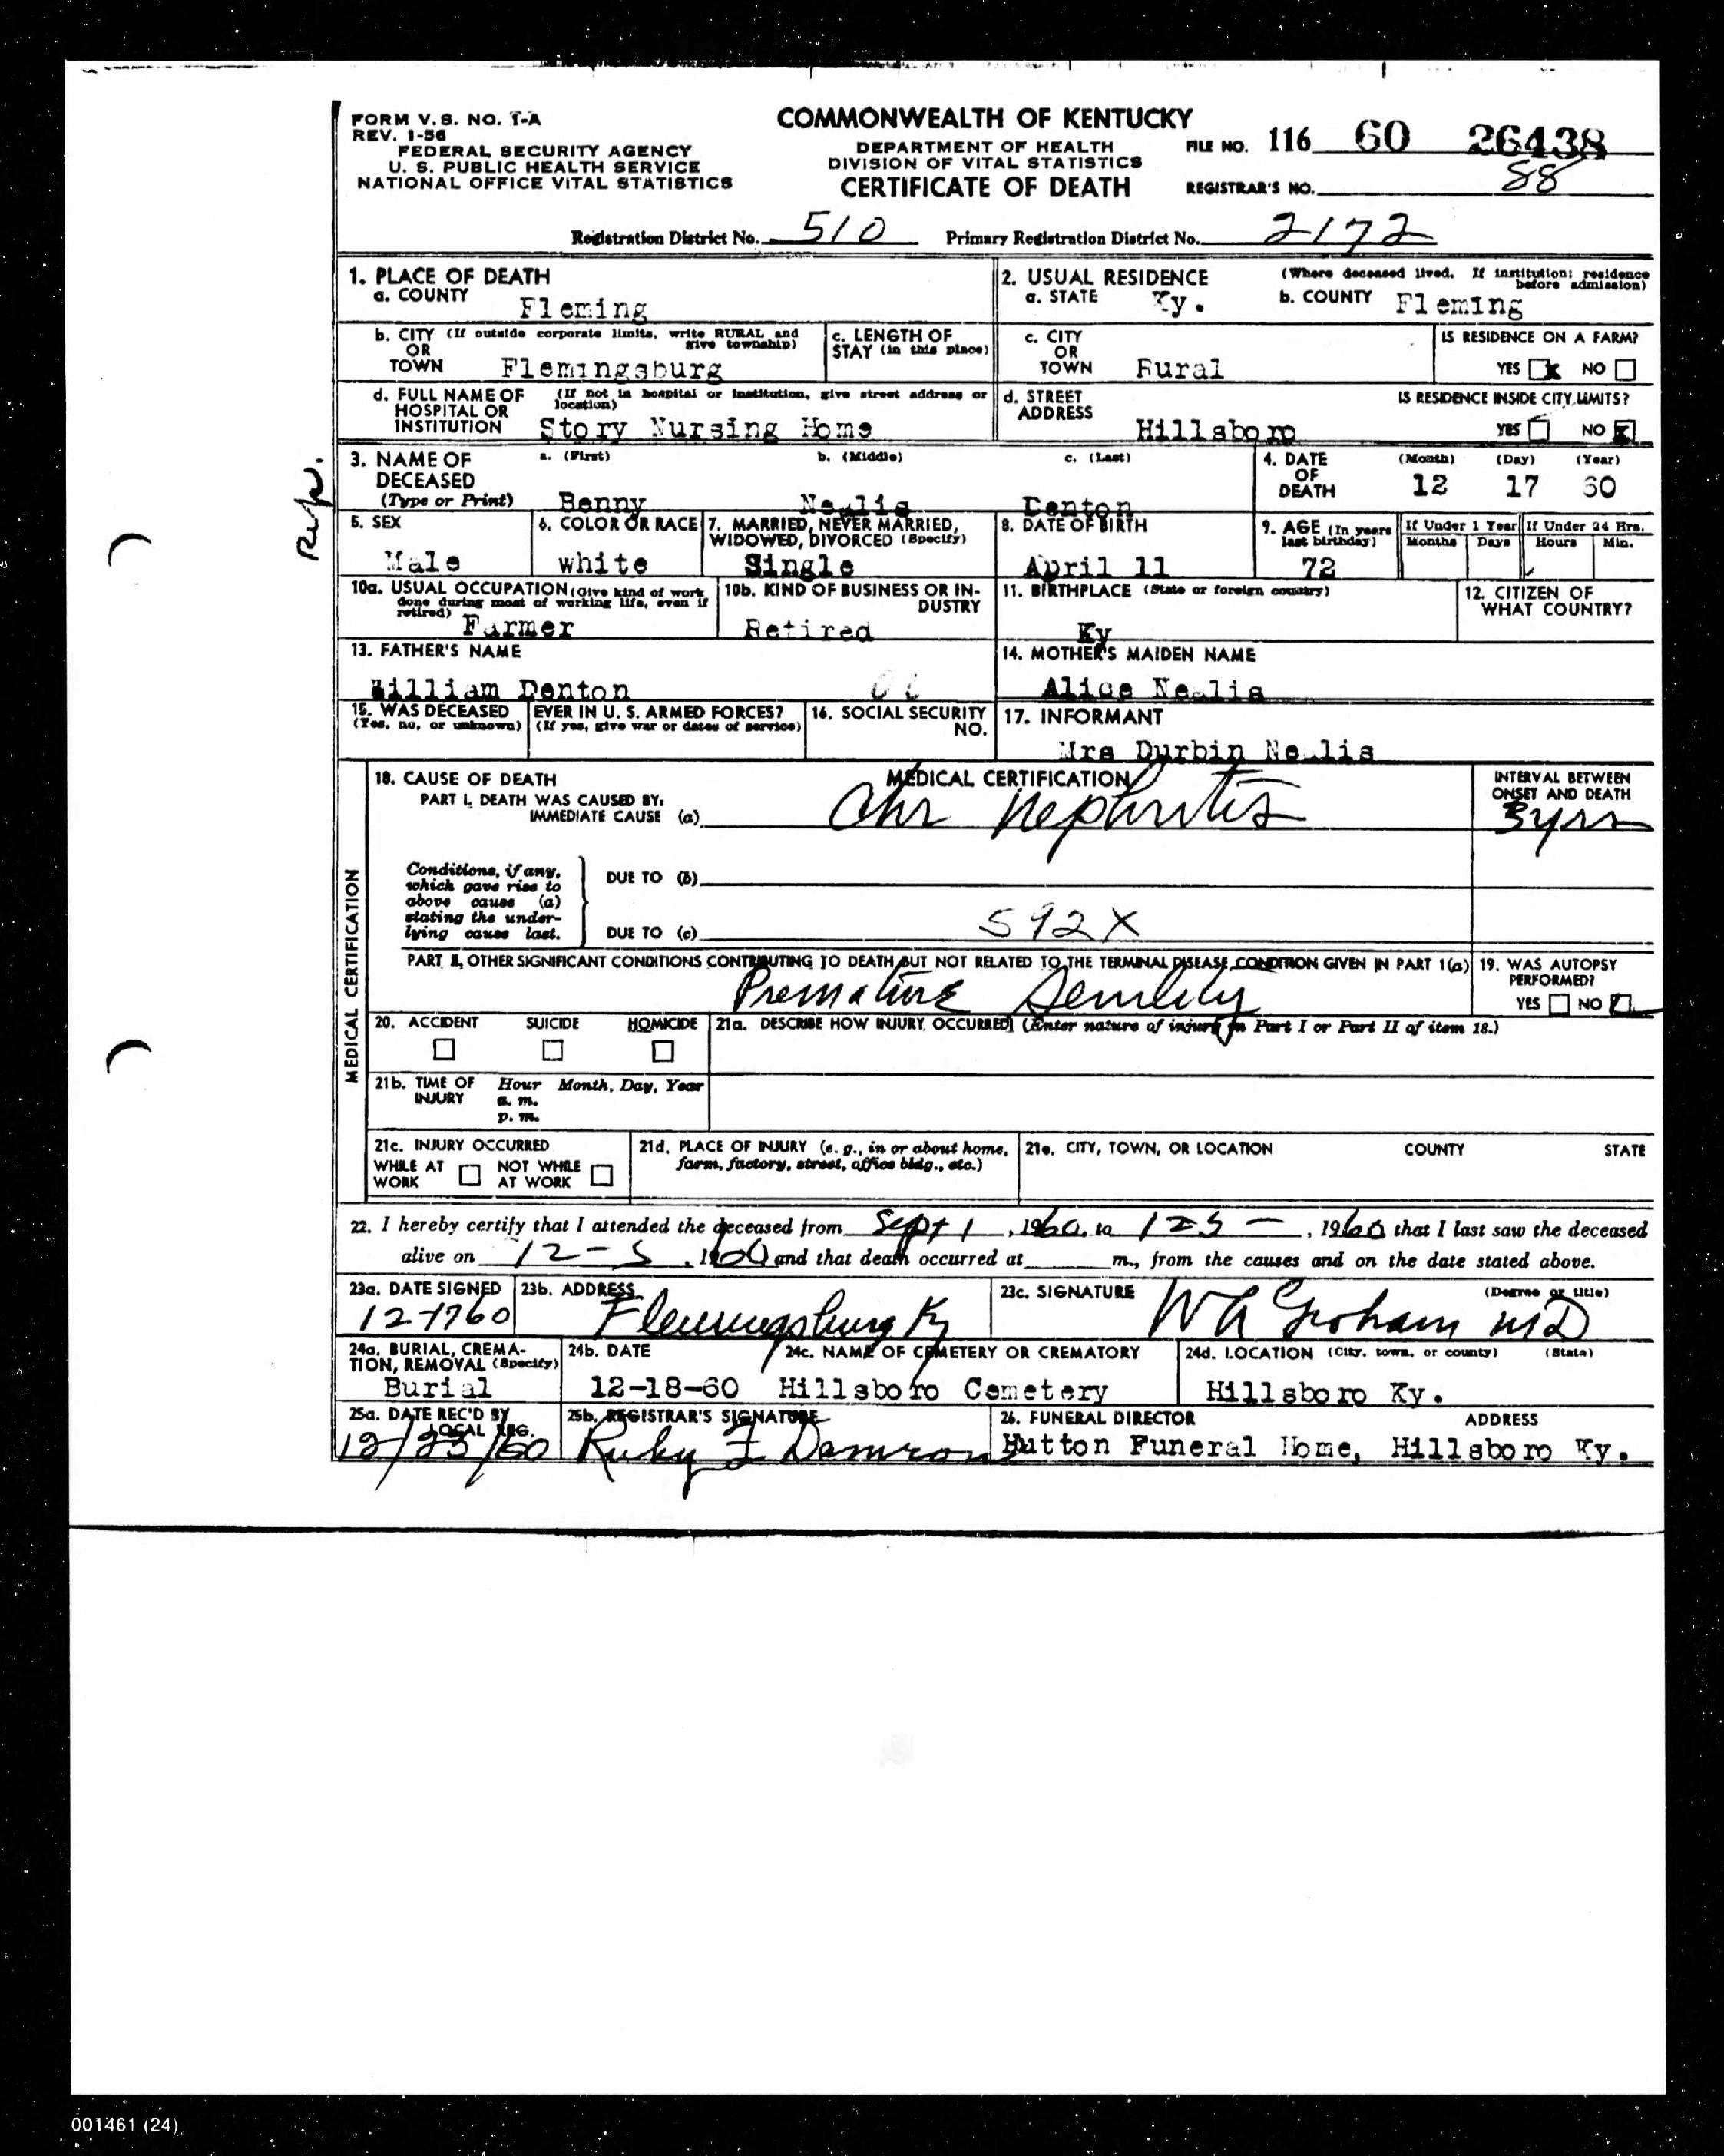 FORM V. S. NO. 1-A
REV. 1-56
FEDERAL SECURITY AGENCY
U. S. PUBLIC HEALTH SERVICE
NATIONAL OFFICE VITAL STATISTICS
COMMONWEALTH OF KENTUCKY
DEPARTMENT OF HEALTH
DIVISION OF VITAL STATISTICS
CERTIFICATE OF DEATH
FILE NO. 116 60 26438
REGISTRAR'S NO. 88
Registration District No. 510 Primary Registration District No. 2172
1. PLACE OF DEATH
a. COUNTY Fleming
2. USUAL RESIDENCE (Where deceased lived. If institution: residence before admission)
a. STATE Ky. b. COUNTY Fleming
b. CITY (If outside corporate limits, write RURAL and give township)
OR
TOWN Flemingsburg
c. LENGTH OF STAY (in this place)
c. CITY
OR
TOWN Rural
IS RESIDENCE ON A FARM?
YES x NO
d. FULL NAME OF HOSPITAL OR INSTITUTION (If not in hospital or institution, give street address or location)
Story Nursing Home
d. STREET ADDRESS
Hillsboro
IS RESIDENCE INSIDE CITY LIMITS?
YES NO x
3. NAME OF DECEASED (Type or Print)
a. (First) b. (Middle) c. (Last)
Benny Nealis Denton
4. DATE OF DEATH (Month) (Day) (Year)
12 17 60
5. SEX
Male
6. COLOR OR RACE
white
7. MARRIED, NEVER MARRIED, WIDOWED, DIVORCED (Specify)
Single
8. DATE OF BIRTH
April 11
9. AGE (In years last birthday)
72
If Under 1 Year If Under 24 Hrs.
Months Days Hours Min.
10a. USUAL OCCUPATION (Give kind of work done during most of working life, even if retired)
Farmer
10b. KIND OF BUSINESS OR INDUSTRY
Retired
11. BIRTHPLACE (State or foreign country)
Ky
12. CITIZEN OF WHAT COUNTRY?
13. FATHER'S NAME
William Denton
14. MOTHER'S MAIDEN NAME
Alice Nealis
15. WAS DECEASED EVER IN U. S. ARMED FORCES?
(Yes, no, or unknown) (If yes, give war or dates of service)
16. SOCIAL SECURITY NO.
17. INFORMANT
Mrs Durbin Nealis
MEDICAL CERTIFICATION
18. CAUSE OF DEATH MEDICAL CERTIFICATION
PART I. DEATH WAS CAUSED BY:
IMMEDIATE CAUSE (a) Chr Nephritis
INTERVAL BETWEEN ONSET AND DEATH
3 yrs
Conditions, if any, which gave rise to above cause (a) stating the underlying cause last.
DUE TO (b)
DUE TO (c) 592X
PART II. OTHER SIGNIFICANT CONDITIONS CONTRIBUTING TO DEATH BUT NOT RELATED TO THE TERMINAL DISEASE CONDITION GIVEN IN PART 1(a)
Premature Senility
19. WAS AUTOPSY PERFORMED?
YES NO
20. ACCIDENT SUICIDE HOMICIDE
21a. DESCRIBE HOW INJURY OCCURRED (Enter nature of injury in Part I or Part II of item 18.)
21b. TIME OF INJURY Hour Month, Day, Year
a. m.
p. m.
21c. INJURY OCCURRED
WHILE AT WORK NOT WHILE AT WORK
21d. PLACE OF INJURY (e. g., in or about home, farm, factory, street, office bldg., etc.)
21e. CITY, TOWN, OR LOCATION COUNTY STATE
22. I hereby certify that I attended the deceased from Sept 1, 1960, to 12 5 –, 1960 that I last saw the deceased
alive on 12-5, 1960 and that death occurred at m., from the causes and on the date stated above.
23a. DATE SIGNED
12-1760
23b. ADDRESS
Flemingsburg Ky
23c. SIGNATURE (Degree or title)
W A Graham MD
24a. BURIAL, CREMATION, REMOVAL (Specify)
Burial
24b. DATE
12-18-60
24c. NAME OF CEMETERY OR CREMATORY
Hillsboro Cemetery
24d. LOCATION (City, town, or county) (State)
Hillsboro Ky.
25a. DATE REC'D BY LOCAL REG.
12/23/60
25b. REGISTRAR'S SIGNATURE
Ruby F Damron
26. FUNERAL DIRECTOR ADDRESS
Hutton Funeral Home, Hillsboro Ky.
001461 (24)